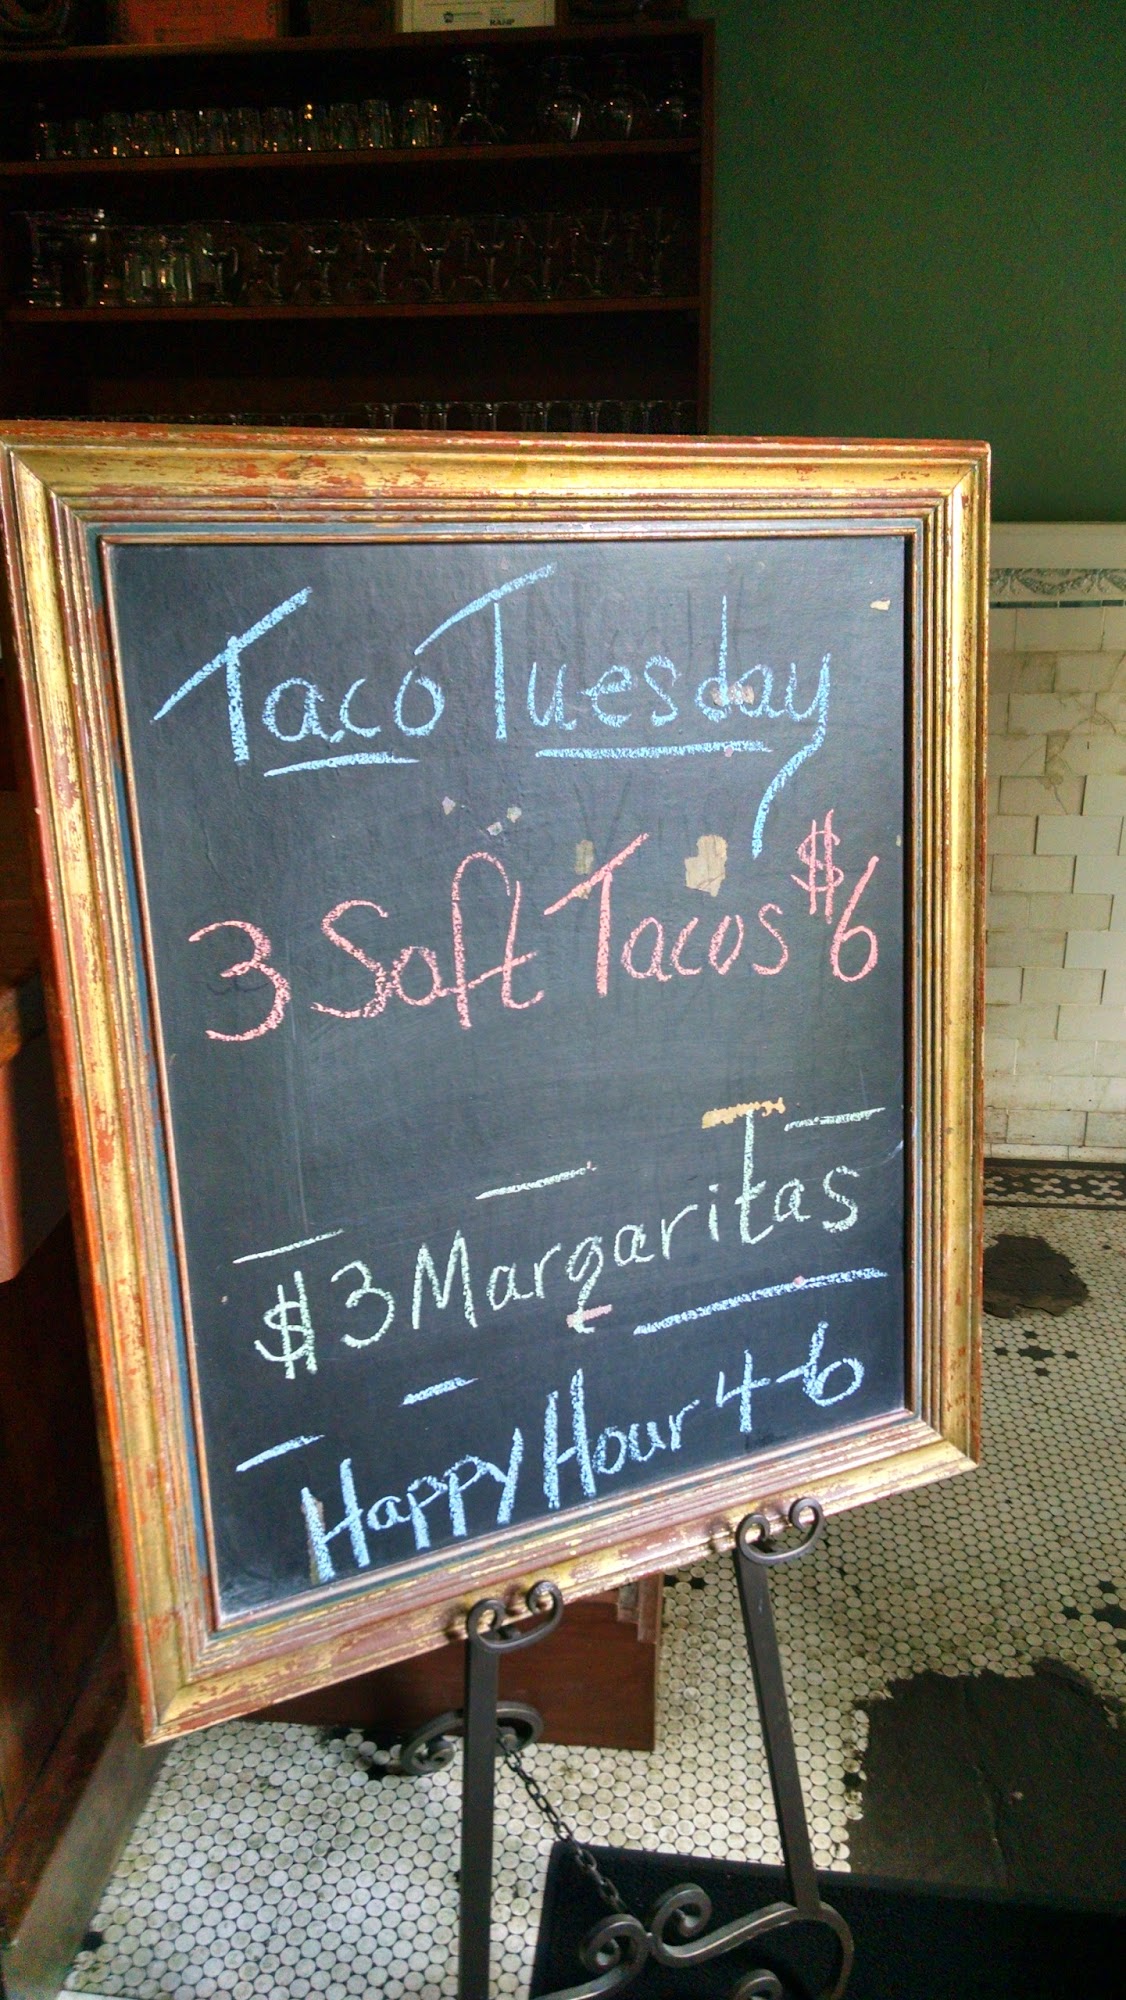 RAMP
Taco Tuesday
3 Soft Tacos $6
$3 Margaritas
Happy Hour 4-6